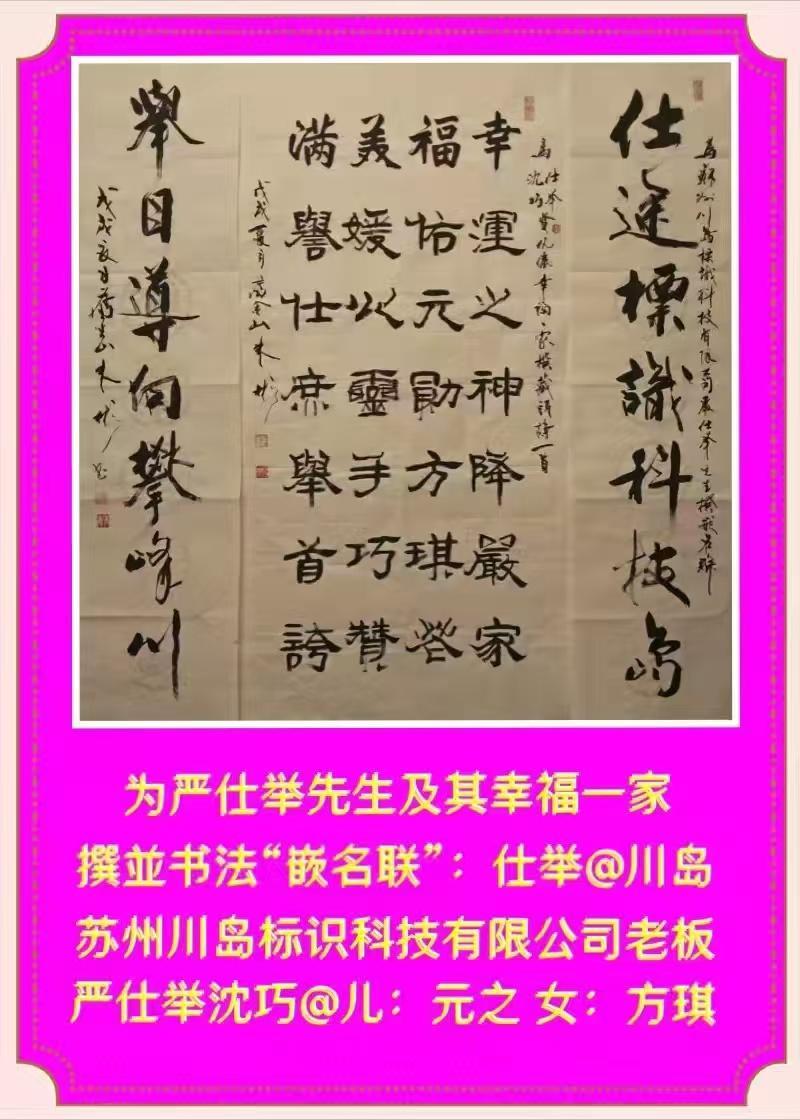 为苏州川島標識科技有限公司嚴仕举先生撰嵌名聯
仕途標識科技島
为仕举沈巧賢伉儷幸福一家撰藏頭詩一首
幸運之神降嚴家
福佑元勛方琪營
美媛以靈手巧贊
满譽仕庶舉首誇
戊戌夏月
舉目導向攀峰川
戊戌夏月
为严仕举先生及其幸福一家
撰並书法“嵌名联”：仕举@川岛
苏州川岛标识科技有限公司老板
严仕举沈巧@儿：元之 女：方琪